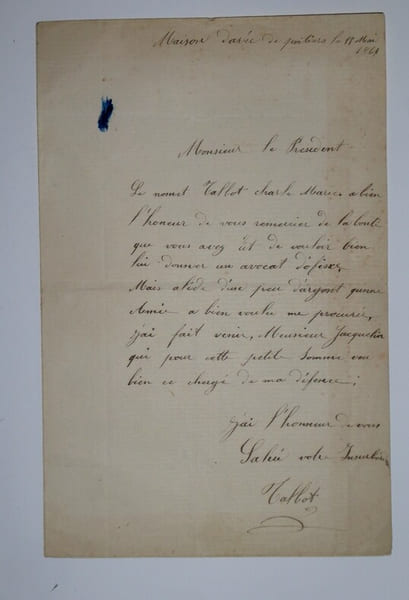 Maison d'arrée de poitiers le 18 Mai
1861
Monsieur le President
Le nomet Tallot charle Marie a bien
l'honeur de vous remercier de la bonté
que vous avez üt de vouloir bien
lui donner un avocat d'ofise,
Mais a l'ide d'une peu d'argont qunne
Amie a bien voulu me procurer,
j'ai fait venir, Monsieur Jacquelin
qui pour cette petite somme veu
bien ce chargé de ma défence;
j'ai l'honneur de vous
Salué votre
Tallot